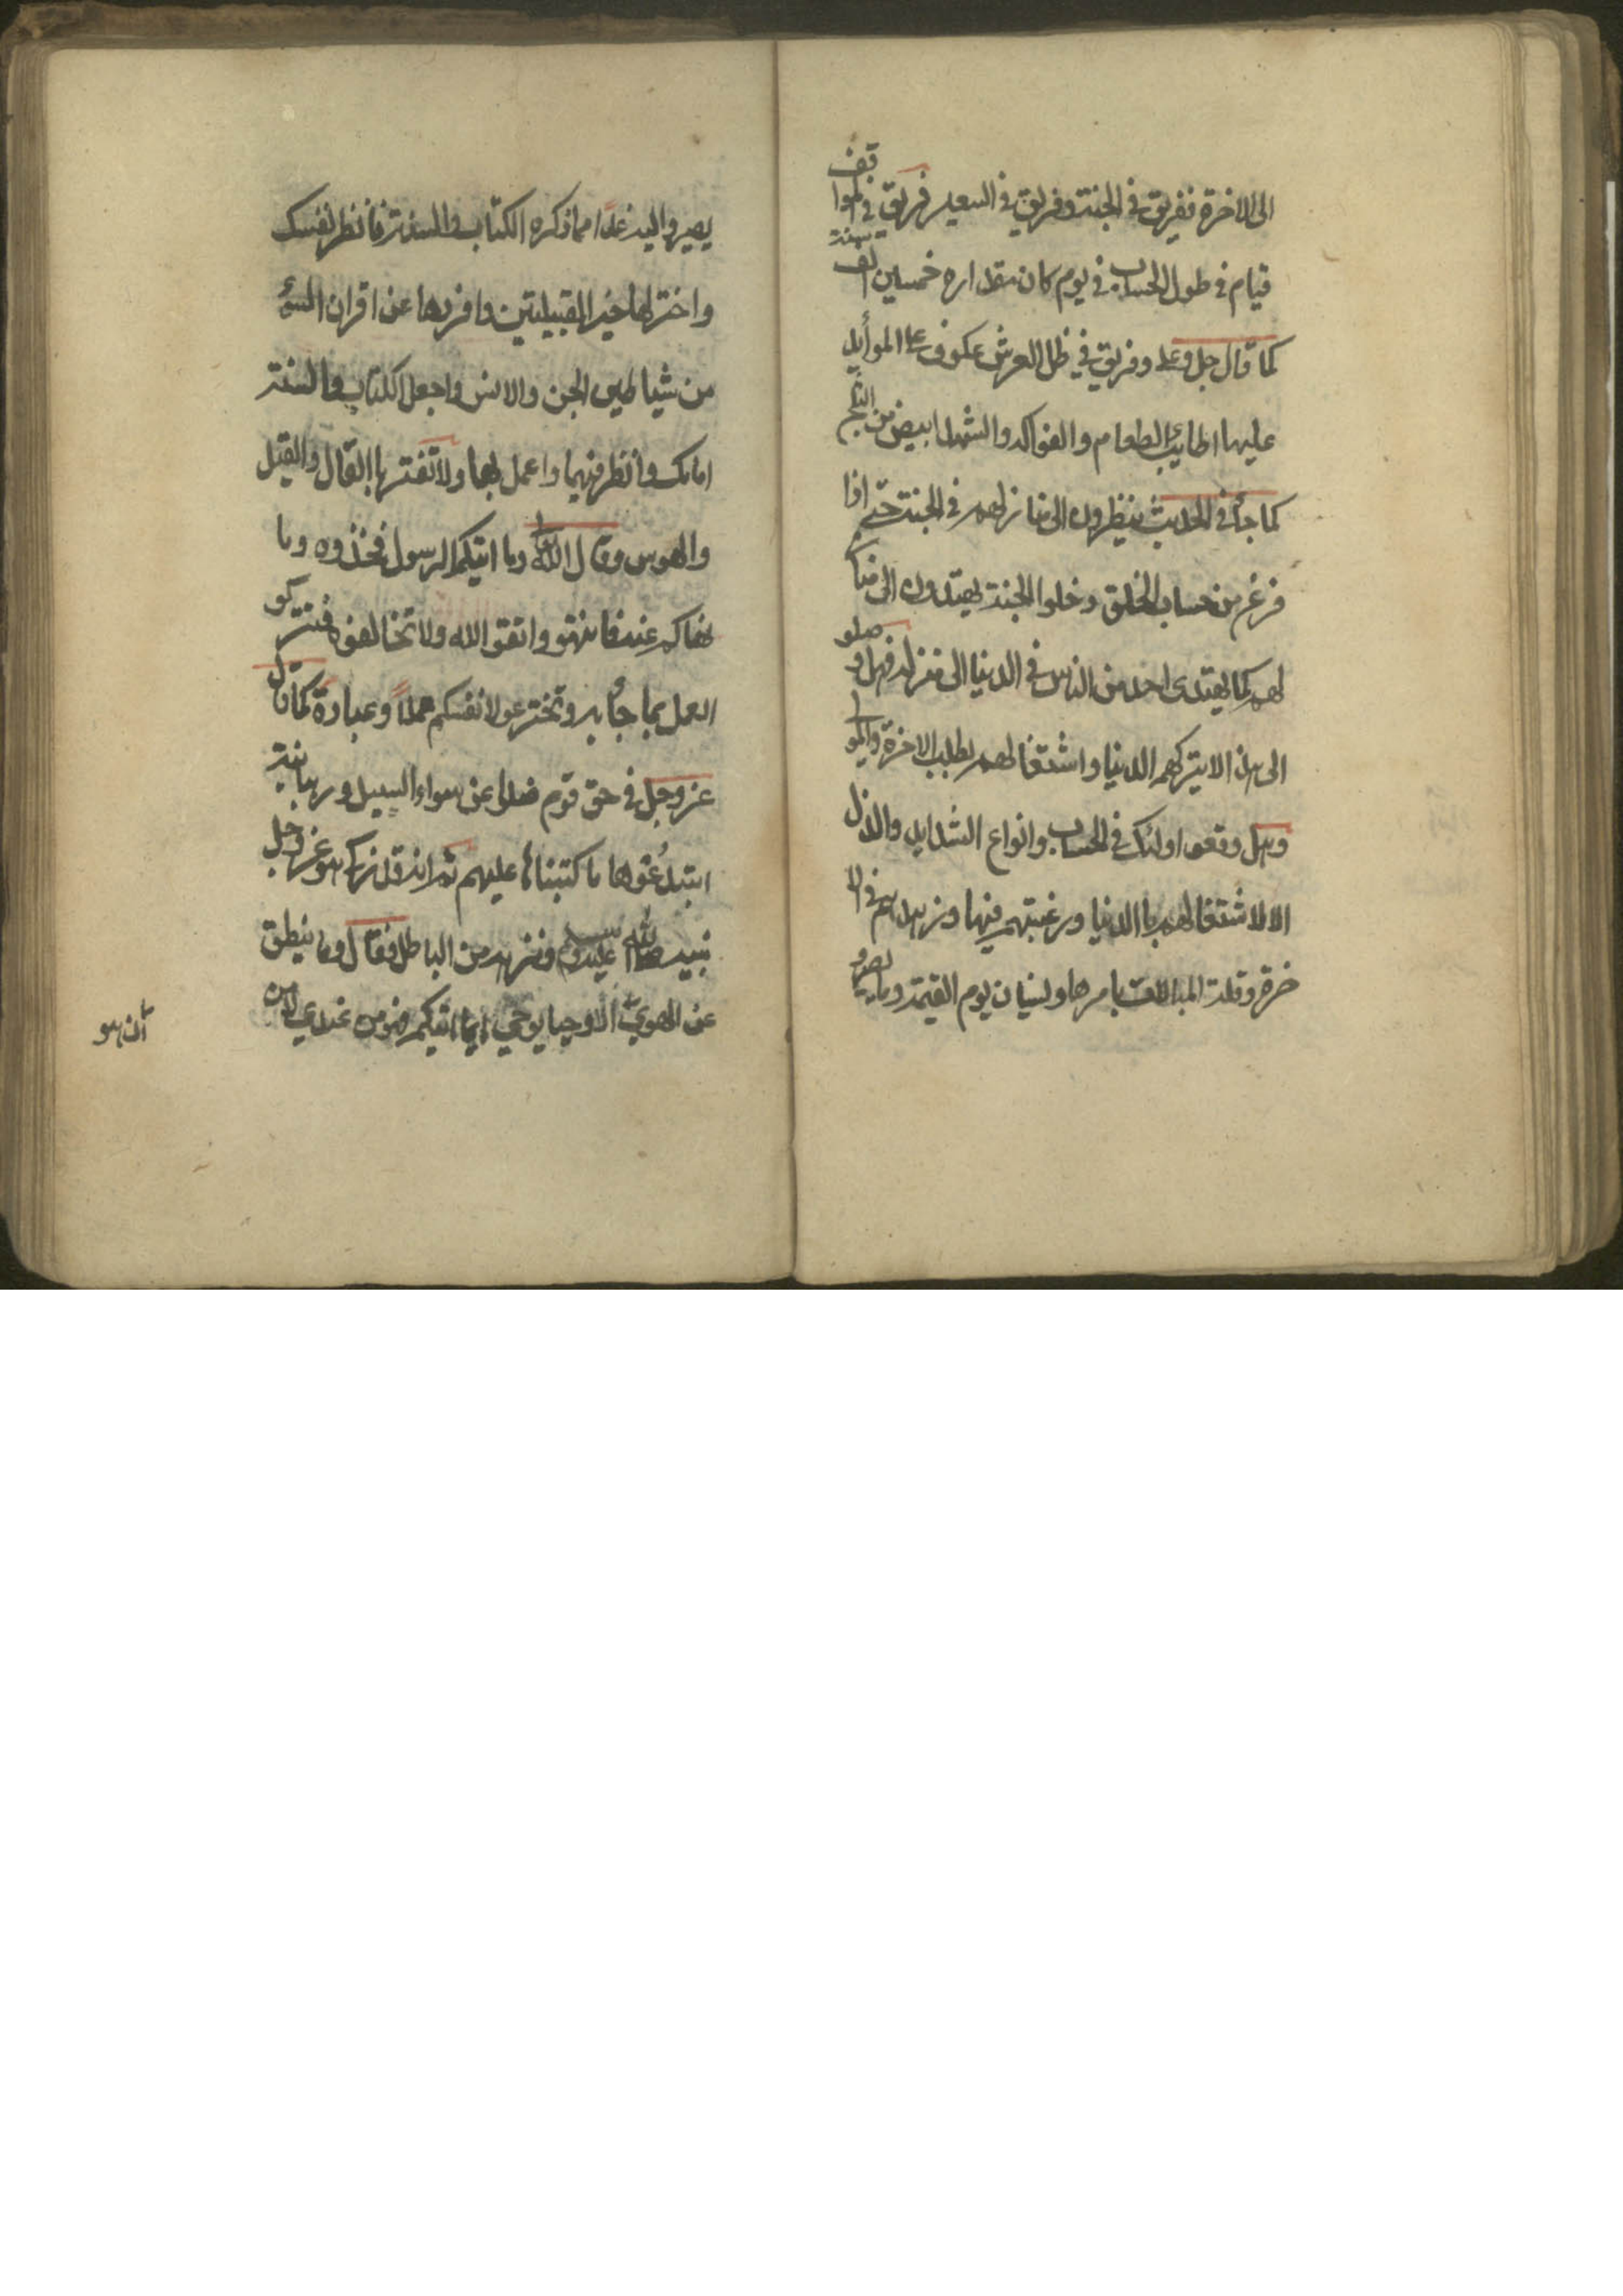 الى الاخرة ففريق في الجنة وفريق في السعير فريق في الموا
قف
قيام في طول الحساب في يوم كان مقداره خمسين الف سنة
كما قال جل وعلا وفريق في ظل العرش عكوف على الموأيد
عليها اطايب الطعام والفواكه والشهد ابيض من الثلج
كما جأ في الحديث ينظرون الى منازلهم في الجنة حتى اذا
فرغ من حساب الخلق دخلوا الجنة يهتدون الى منا
لهم كما يهتدى احد من الناس في الدنيا الى منزله فهل وصلو
الى هذا الا بتركهم الدنيا واشتغالهم بطلب الاخرة والمو
وهل وقعو اولئك في الحساب وانواع الشدايد والذل
الا لاشتغالهم باالدنيا ورغبتهم فيها وزهدهم في الا
خرة وقلت المبالات بامرها ونسيان يوم القيمة وما
يصيرو اليه غدا مما ذكره الكتاب والسنة فانظر نفسك
واختر لها خير القبيلتين وافردها عن اقران السؤ
من شياطين الجن والانس واجعل الكتاب والسنة
امامك وانظر فيهما واعمل بهما ولا تغتر باالقال والقيل
والهوس وقال الله تعالى وما اتيكم الرسول فخذوه وما
نهاكم عنه فانتهو واتقو الله ولا تخالفوه فتتركو
العمل بما جأ به وتخترعو لانفسكم عملاً وعبادة كما قال
عز وجل في حق قوم ضلوا عن سواء السبيل ورهبانية
ابتدعوها ما كتبناها عليهم ثم انه قد زكا هو عز وجل
نبيه صلى الله عليه وسلم ونزهه من الباطل فقال وما ينطق
عن الهوي الا وحيا يوحي اي ما اتيكم فهو من عندي لا من
ان هو